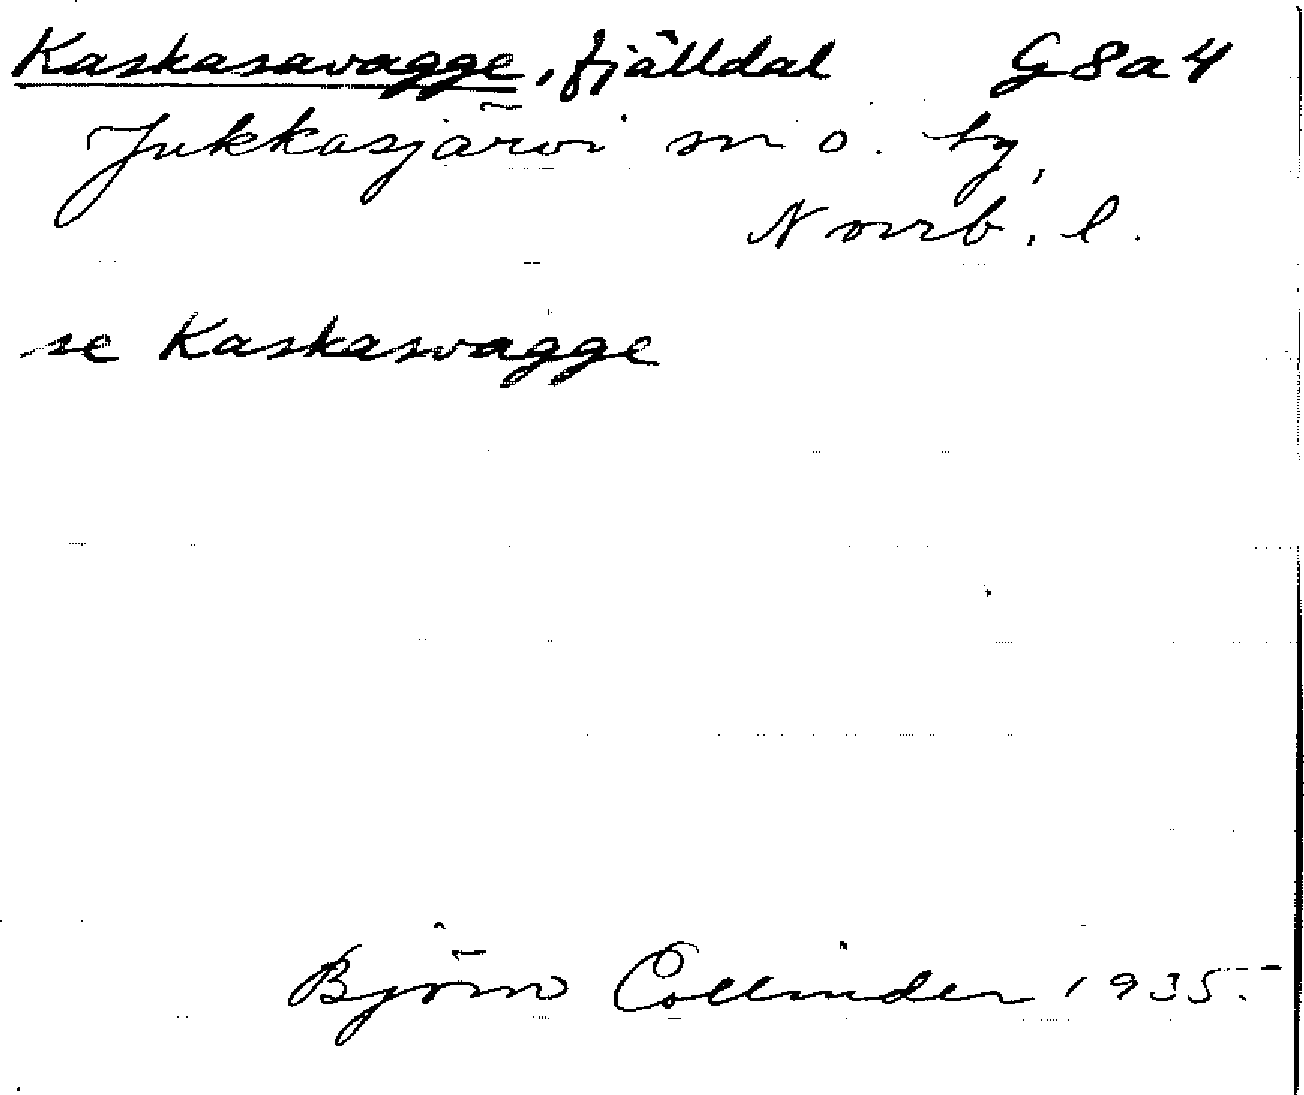 Kaskasavagge, fjälldal G8a4
Jukkasjärvi sn o. by,
Norrb. l.
se Kaskasvagge
Björn Collinder 1935.